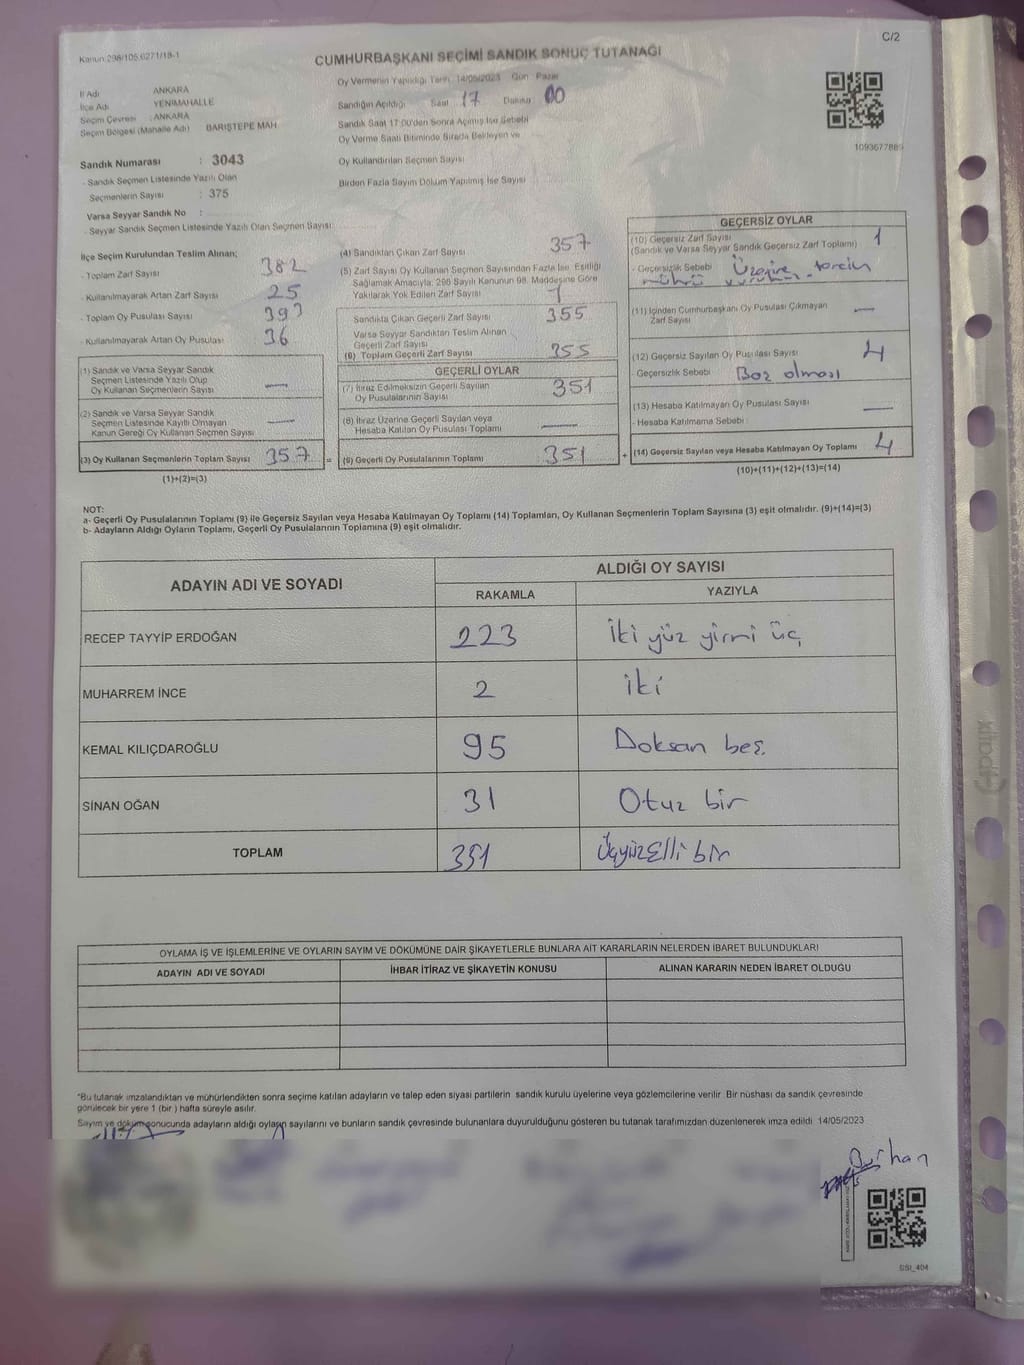 Kanun:298/105.6271/18-1
C/2
CUMHURBAŞKANI SEÇİMİ SANDIK SONUÇ TUTANAĞI
İl Adı ANKARA
İlçe Adı YENİMAHALLE
Seçim Çevresi : ANKARA
Seçim Bölgesi (Mahalle Adı) BARIŞTEPE MAH.
Sandık Numarası : 3043
- Sandık Seçmen Listesinde Yazılı Olan
Seçmenlerin Sayısı : 375
Varsa Seyyar Sandık No :
- Seyyar Sandık Seçmen Listesinde Yazılı Olan Seçmen Sayısı:
Oy Vermenin Yapıldığı Tarih: 14/05/2023 Gün: Pazar
Sandığın Açıldığı Saat 17 Dakika 00
Sandık Saat 17:00'den Sonra Açılmış İse Sebebi
Oy Verme Saati Bitiminde Sırada Bekleyen ve
Oy Kullandırılan Seçmen Sayısı
Birden Fazla Sayım Döküm Yapılmış İse Sayısı
İlçe Seçim Kurulundan Teslim Alınan;
- Toplam Zarf Sayısı 382
- Kullanılmayarak Artan Zarf Sayısı 25
- Toplam Oy Pusulası Sayısı 393
- Kullanılmayarak Artan Oy Pusulası 36
(1) Sandık ve Varsa Seyyar Sandık
Seçmen Listesinde Yazılı Olup
Oy Kullanan Seçmenlerin Sayısı —
(2) Sandık ve Varsa Seyyar Sandık
Seçmen Listesinde Kayıtlı Olmayan
Kanun Gereği Oy Kullanan Seçmen Sayısı —
(3) Oy Kullanan Seçmenlerin Toplam Sayısı 357 =
(1)+(2)=(3)
(4) Sandıktan Çıkan Zarf Sayısı 357
(5) Zarf Sayısı Oy Kullanan Seçmen Sayısından Fazla İse, Eşitliği
Sağlamak Amacıyla; 298 Sayılı Kanunun 98. Maddesine Göre
Yakılarak Yok Edilen Zarf Sayısı
Sandıkta Çıkan Geçerli Zarf Sayısı 355
Varsa Seyyar Sandıktan Teslim Alınan
Geçerli Zarf Sayısı
(6) Toplam Geçerli Zarf Sayısı 355
GEÇERLİ OYLAR
(7) İtiraz Edilmeksizin Geçerli Sayılan
Oy Pusulalarının Sayısı 351
(8) İtiraz Üzerine Geçerli Sayılan veya
Hesaba Katılan Oy Pusulası Toplamı —
(9) Geçerli Oy Pusulalarının Toplamı 351 +
GEÇERSİZ OYLAR
(10) Geçersiz Zarf Sayısı 1
(Sandık ve Varsa Seyyar Sandık Geçersiz Zarf Toplamı)
- Geçersizlik Sebebi Üzerine tercih
mührü vurulması
(11) İçinden Cumhurbaşkanı Oy Pusulası Çıkmayan
Zarf Sayısı —
(12) Geçersiz Sayılan Oy Pusulası Sayısı 4
- Geçersizlik Sebebi Boş olması
(13) Hesaba Katılmayan Oy Pusulası Sayısı —
- Hesaba Katılmama Sebebi
(14) Geçersiz Sayılan veya Hesaba Katılmayan Oy Toplamı 4
(10)+(11)+(12)+(13)=(14)
NOT:
a- Geçerli Oy Pusulalarının Toplamı (9) ile Geçersiz Sayılan veya Hesaba Katılmayan Oy Toplamı (14) Toplamları, Oy Kullanan Seçmenlerin Toplam Sayısına (3) eşit olmalıdır. (9)+(14)=(3)
b- Adayların Aldığı Oyların Toplamı, Geçerli Oy Pusulalarının Toplamına (9) eşit olmalıdır.
ADAYIN ADI VE SOYADI
ALDIĞI OY SAYISI
RAKAMLA YAZIYLA
RECEP TAYYİP ERDOĞAN 223 İki yüz yirmi üç
MUHARREM İNCE 2 iki
KEMAL KILIÇDAROĞLU 95 Doksan beş.
SİNAN OĞAN 31 Otuz bir
TOPLAM 351 Üçyüzelli bir
OYLAMA İŞ VE İŞLEMLERİNE VE OYLARIN SAYIM VE DÖKÜMÜNE DAİR ŞİKAYETLERLE BUNLARA AİT KARARLARIN NELERDEN İBARET BULUNDUKLARI
ADAYIN ADI VE SOYADI İHBAR İTİRAZ VE ŞİKAYETİN KONUSU ALINAN KARARIN NEDEN İBARET OLDUĞU
*Bu tutanak imzalandıktan ve mühürlendikten sonra seçime katılan adayların ve talep eden siyasi partilerin sandık kurulu üyelerine veya gözlemcilerine verilir. Bir nüshası da sandık çevresinde
görülecek bir yere 1 (bir ) hafta süreyle asılır.
Sayım ve döküm sonucunda adayların aldığı oyların sayılarını ve bunların sandık çevresinde bulunanlara duyurulduğunu gösteren bu tutanak tarafımızdan düzenlenerek imza edildi. 14/05/2023